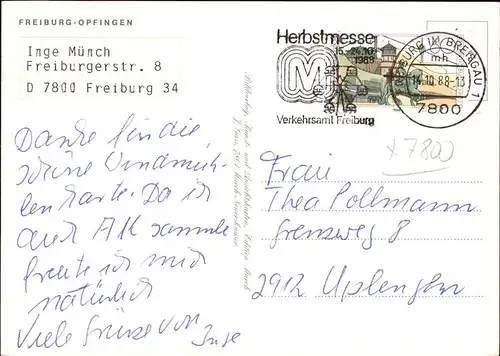 FREIBURG-OPFINGEN
Inge Münch
Freiburgerstr. 8
D 7800 Freiburg 34
Herbstmesse
15.-24.10.
1988
M
Verkehrsamt Freiburg
BURG IM BREISGAU 1
mh
14.10.88-13
7800
x 7800
Danke für die
schöne Windmüh-
lenkarte. Da ich
auch AK sammle
freute ich mich
natürlich
Viele Grüsse von Inge
Frau
Thea Pollmann
Grenzweg 8
2912 Uplengen